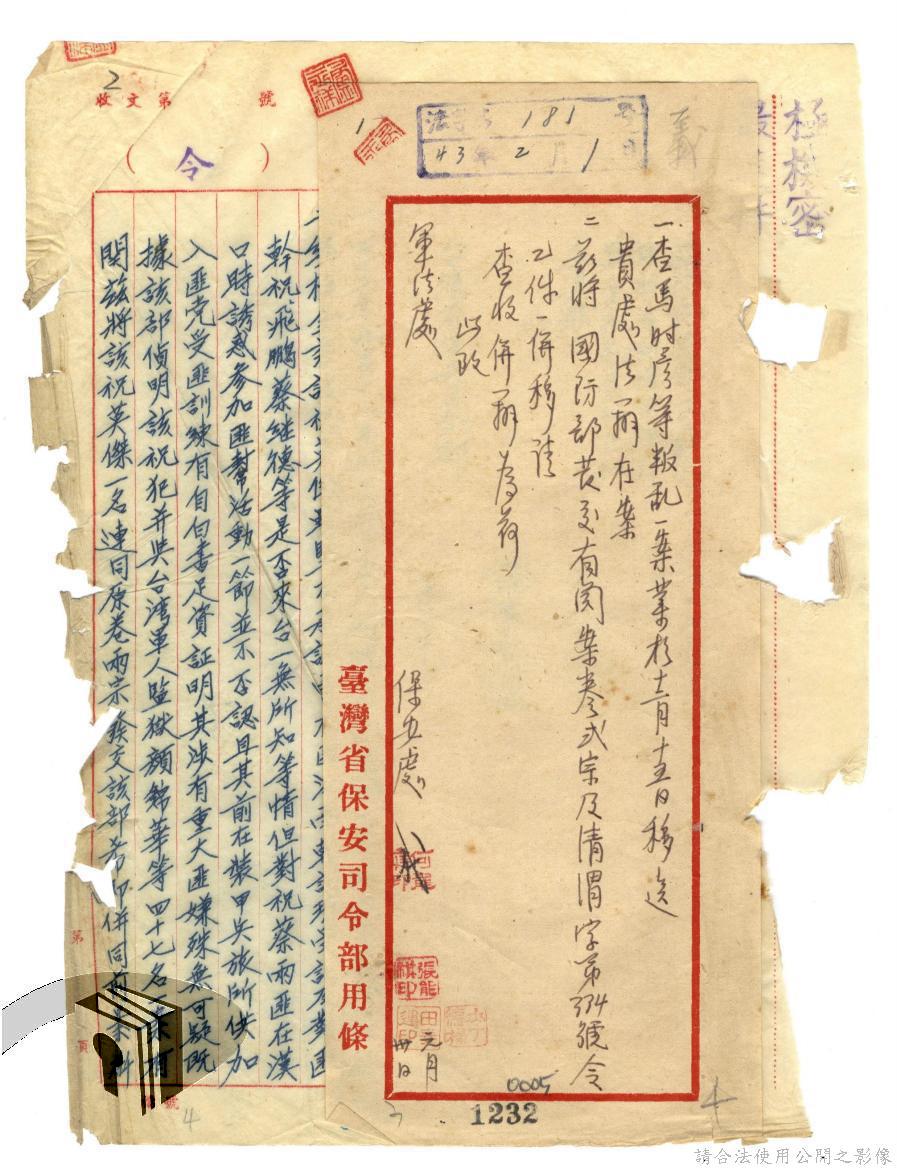 極機密
義
181
43年2月1日
一查馬時彥等叛乱一案業於十二月十五日移送
貴處法辦在案
二茲將 國防部發交有関案卷弍宗及清渭字第334號令
乙件一併移請
查收併辦為荷
此致
軍法處
保安處
元月
卅日
臺灣省保安司令部用條
0005
1232
1
2
收文第 號
(令)
幹祝飛鵬蔡继德等是否來台一無所知等情但對祝蔡兩匪在漢
口時誘惑参加匪幫活動一節並不否認且其前在裝甲兵旅所供加
入匪党受匪訓練有自白書足資証明其涉有重大匪嫌殊無可疑既
據該部偵明該祝犯并與台湾軍人監獄顏錦華等四十七名案有
関茲將該祝英傑一名連同原卷兩宗發交該部希即併同前案
第
頁
號
4
請合法使用公開之影像